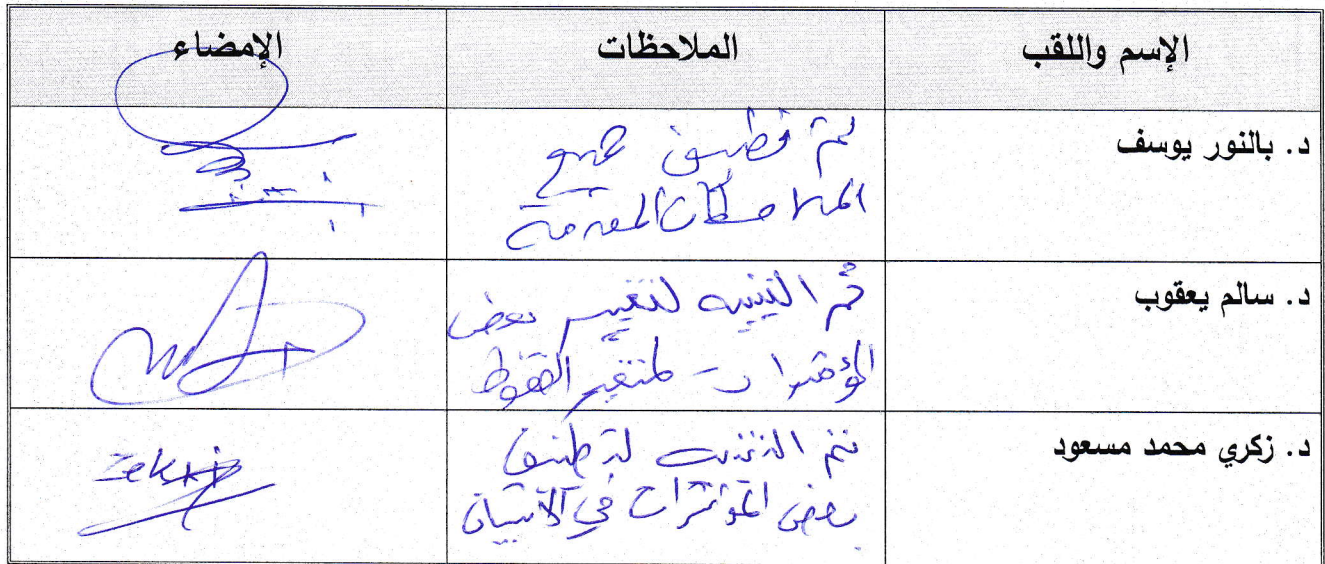 الإسم واللقب
الملاحظات
الإمضاء
د. بالنور يوسف
تم تطبيق جميع
الملاحظات المقدمة
د. سالم يعقوب
تم التنبيه لتغيير بعض
المؤشرات لمتغير الضغوط
د. زكري محمد مسعود
تم التنبيه لتطبيق
بعض المؤشرات في الاستبيان
zekri